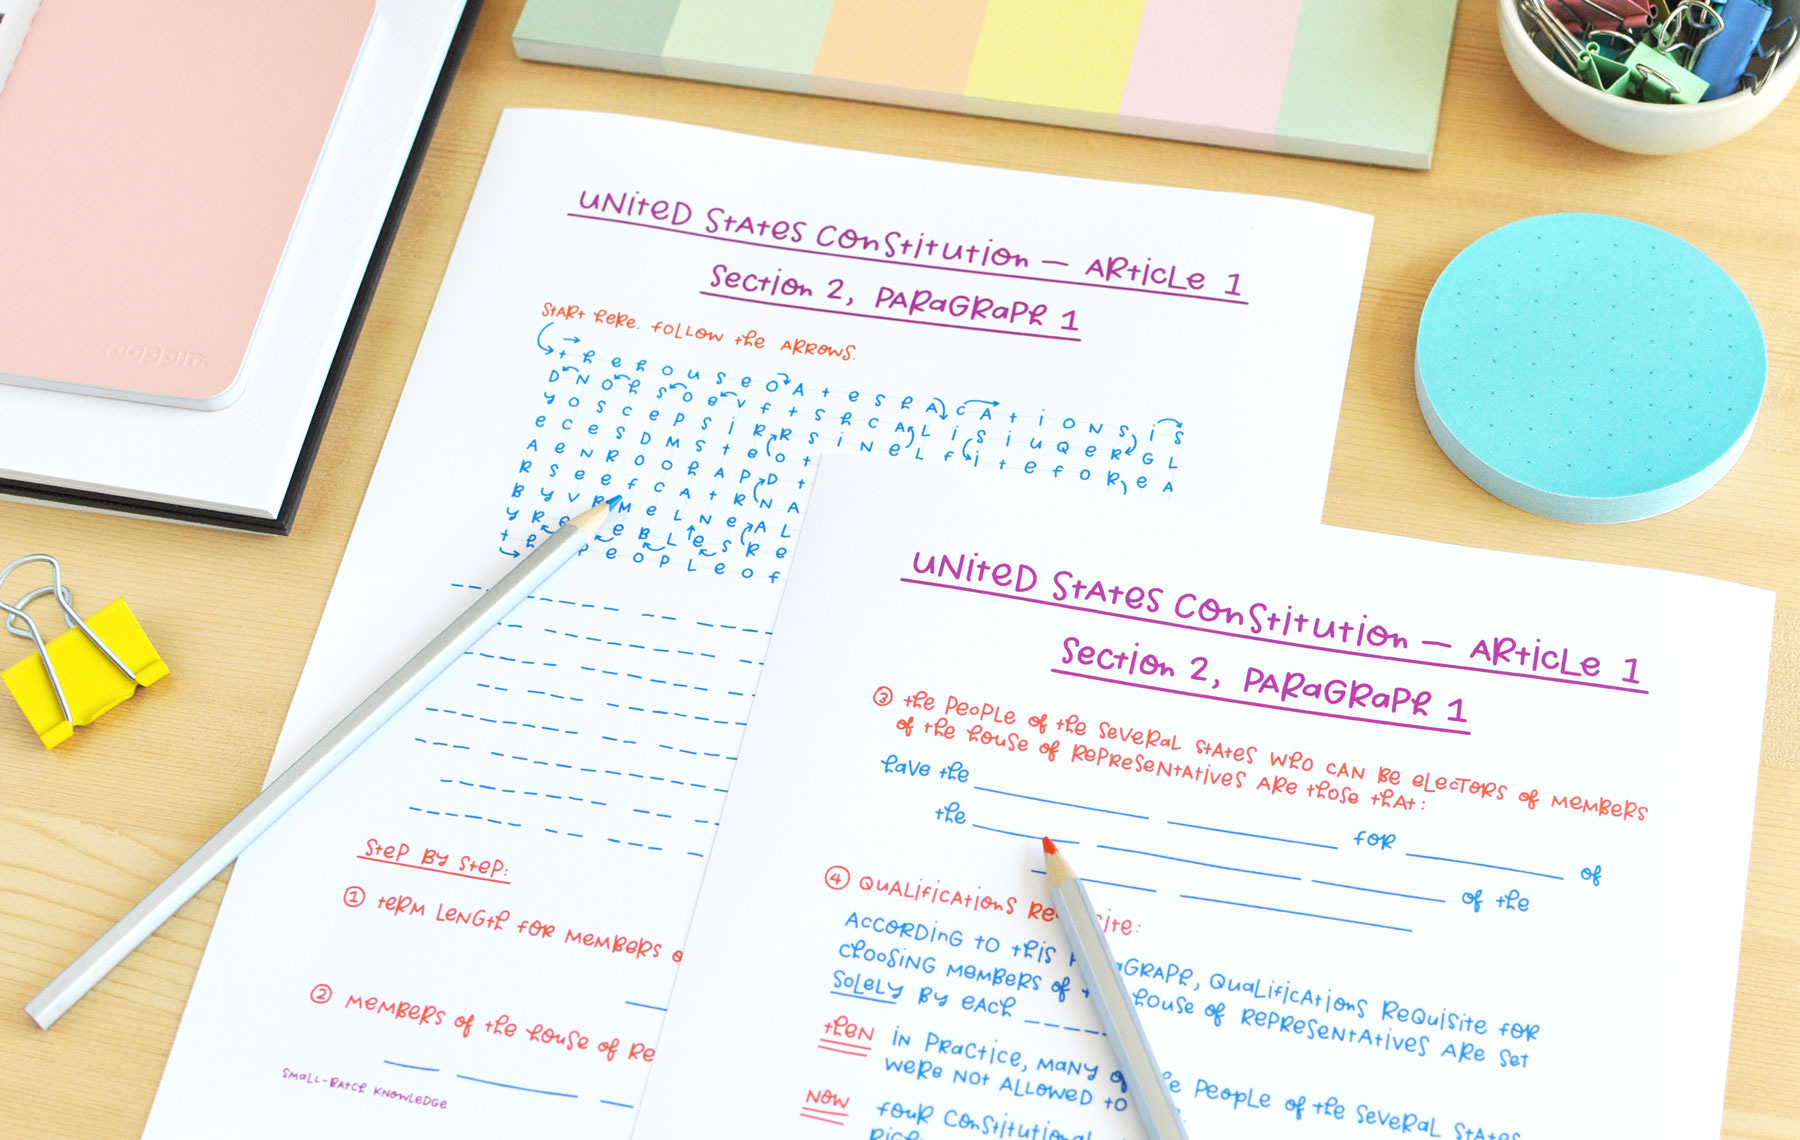 poppin.
United States Constitution — Article 1
Section 2, Paragraph 1
Start here. Follow the arrows.
t h e h o u s e o A t e s h A c A t i o n s i s
D N o h s o e v f t s h c A L i s i u q e R G L
y o s c e p s i R R s i n e L f i t e f o R e A
e c e s D M s t e o t
A e N R o o h A P D t
R s e e f c A t R N A
B y v R M e L N e A L
y R e e B L e s R e
t h P e o p L e o f
Step by step:
① Term length for members
② Members of the House of Re
Small-Batch Knowledge
United States Constitution — Article 1
Section 2, Paragraph 1
③ The people of the several states who can be electors of members
of the House of Representatives are those that:
have the ______ ______ for ______ of
the ______ ______ ______ of the
______ ______
④ Qualifications Re ite:
According to this aragraph, qualifications requisite for
choosing members of t House of Representatives are set
solely by each _ _ _ _
Then in practice, many o e people of the several states
were not allowed to
Now four constitutional